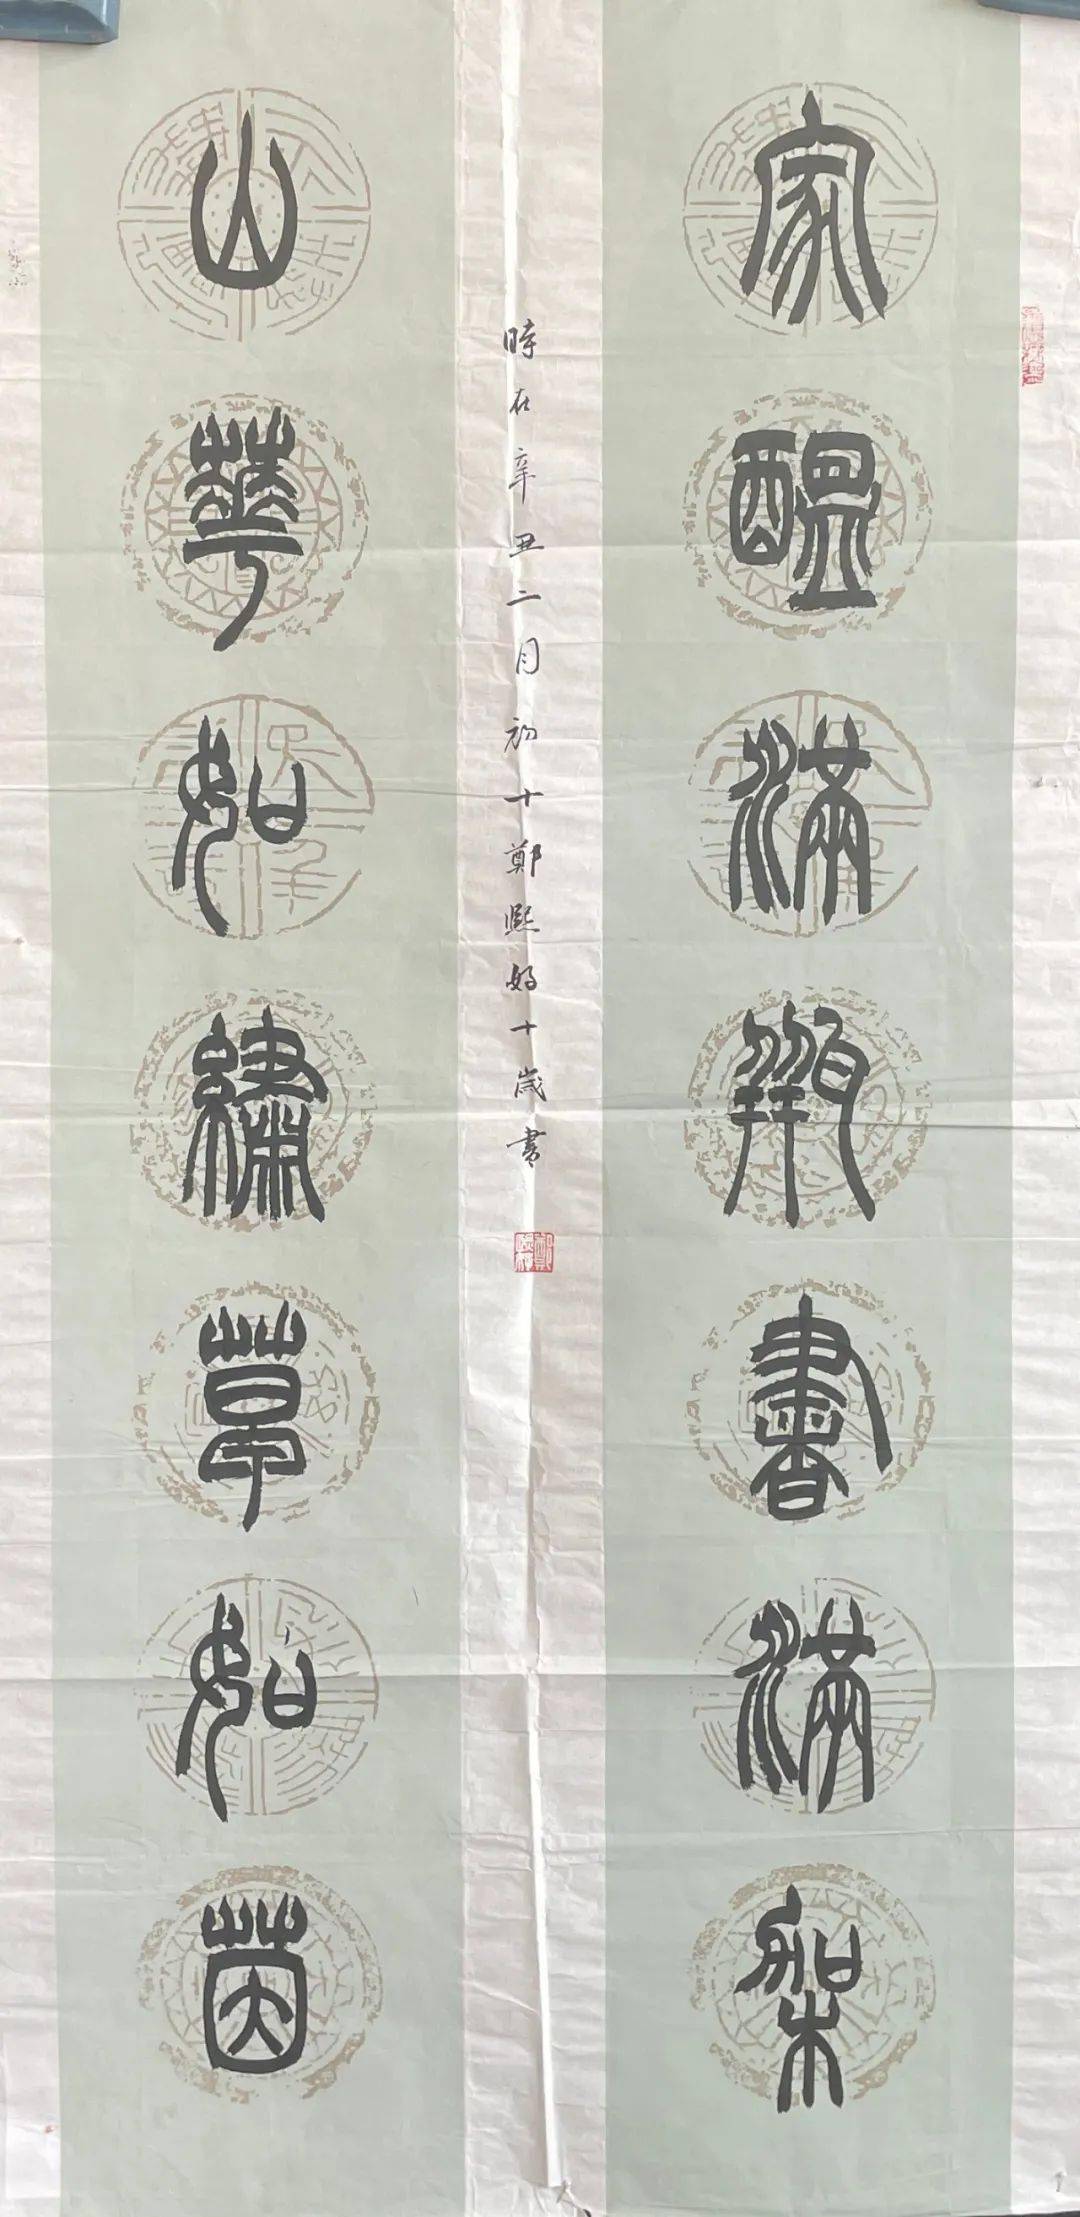 家醞滿瓶書滿架
山華如繡草如茵
時在辛丑二月初十鄭熙十歲書